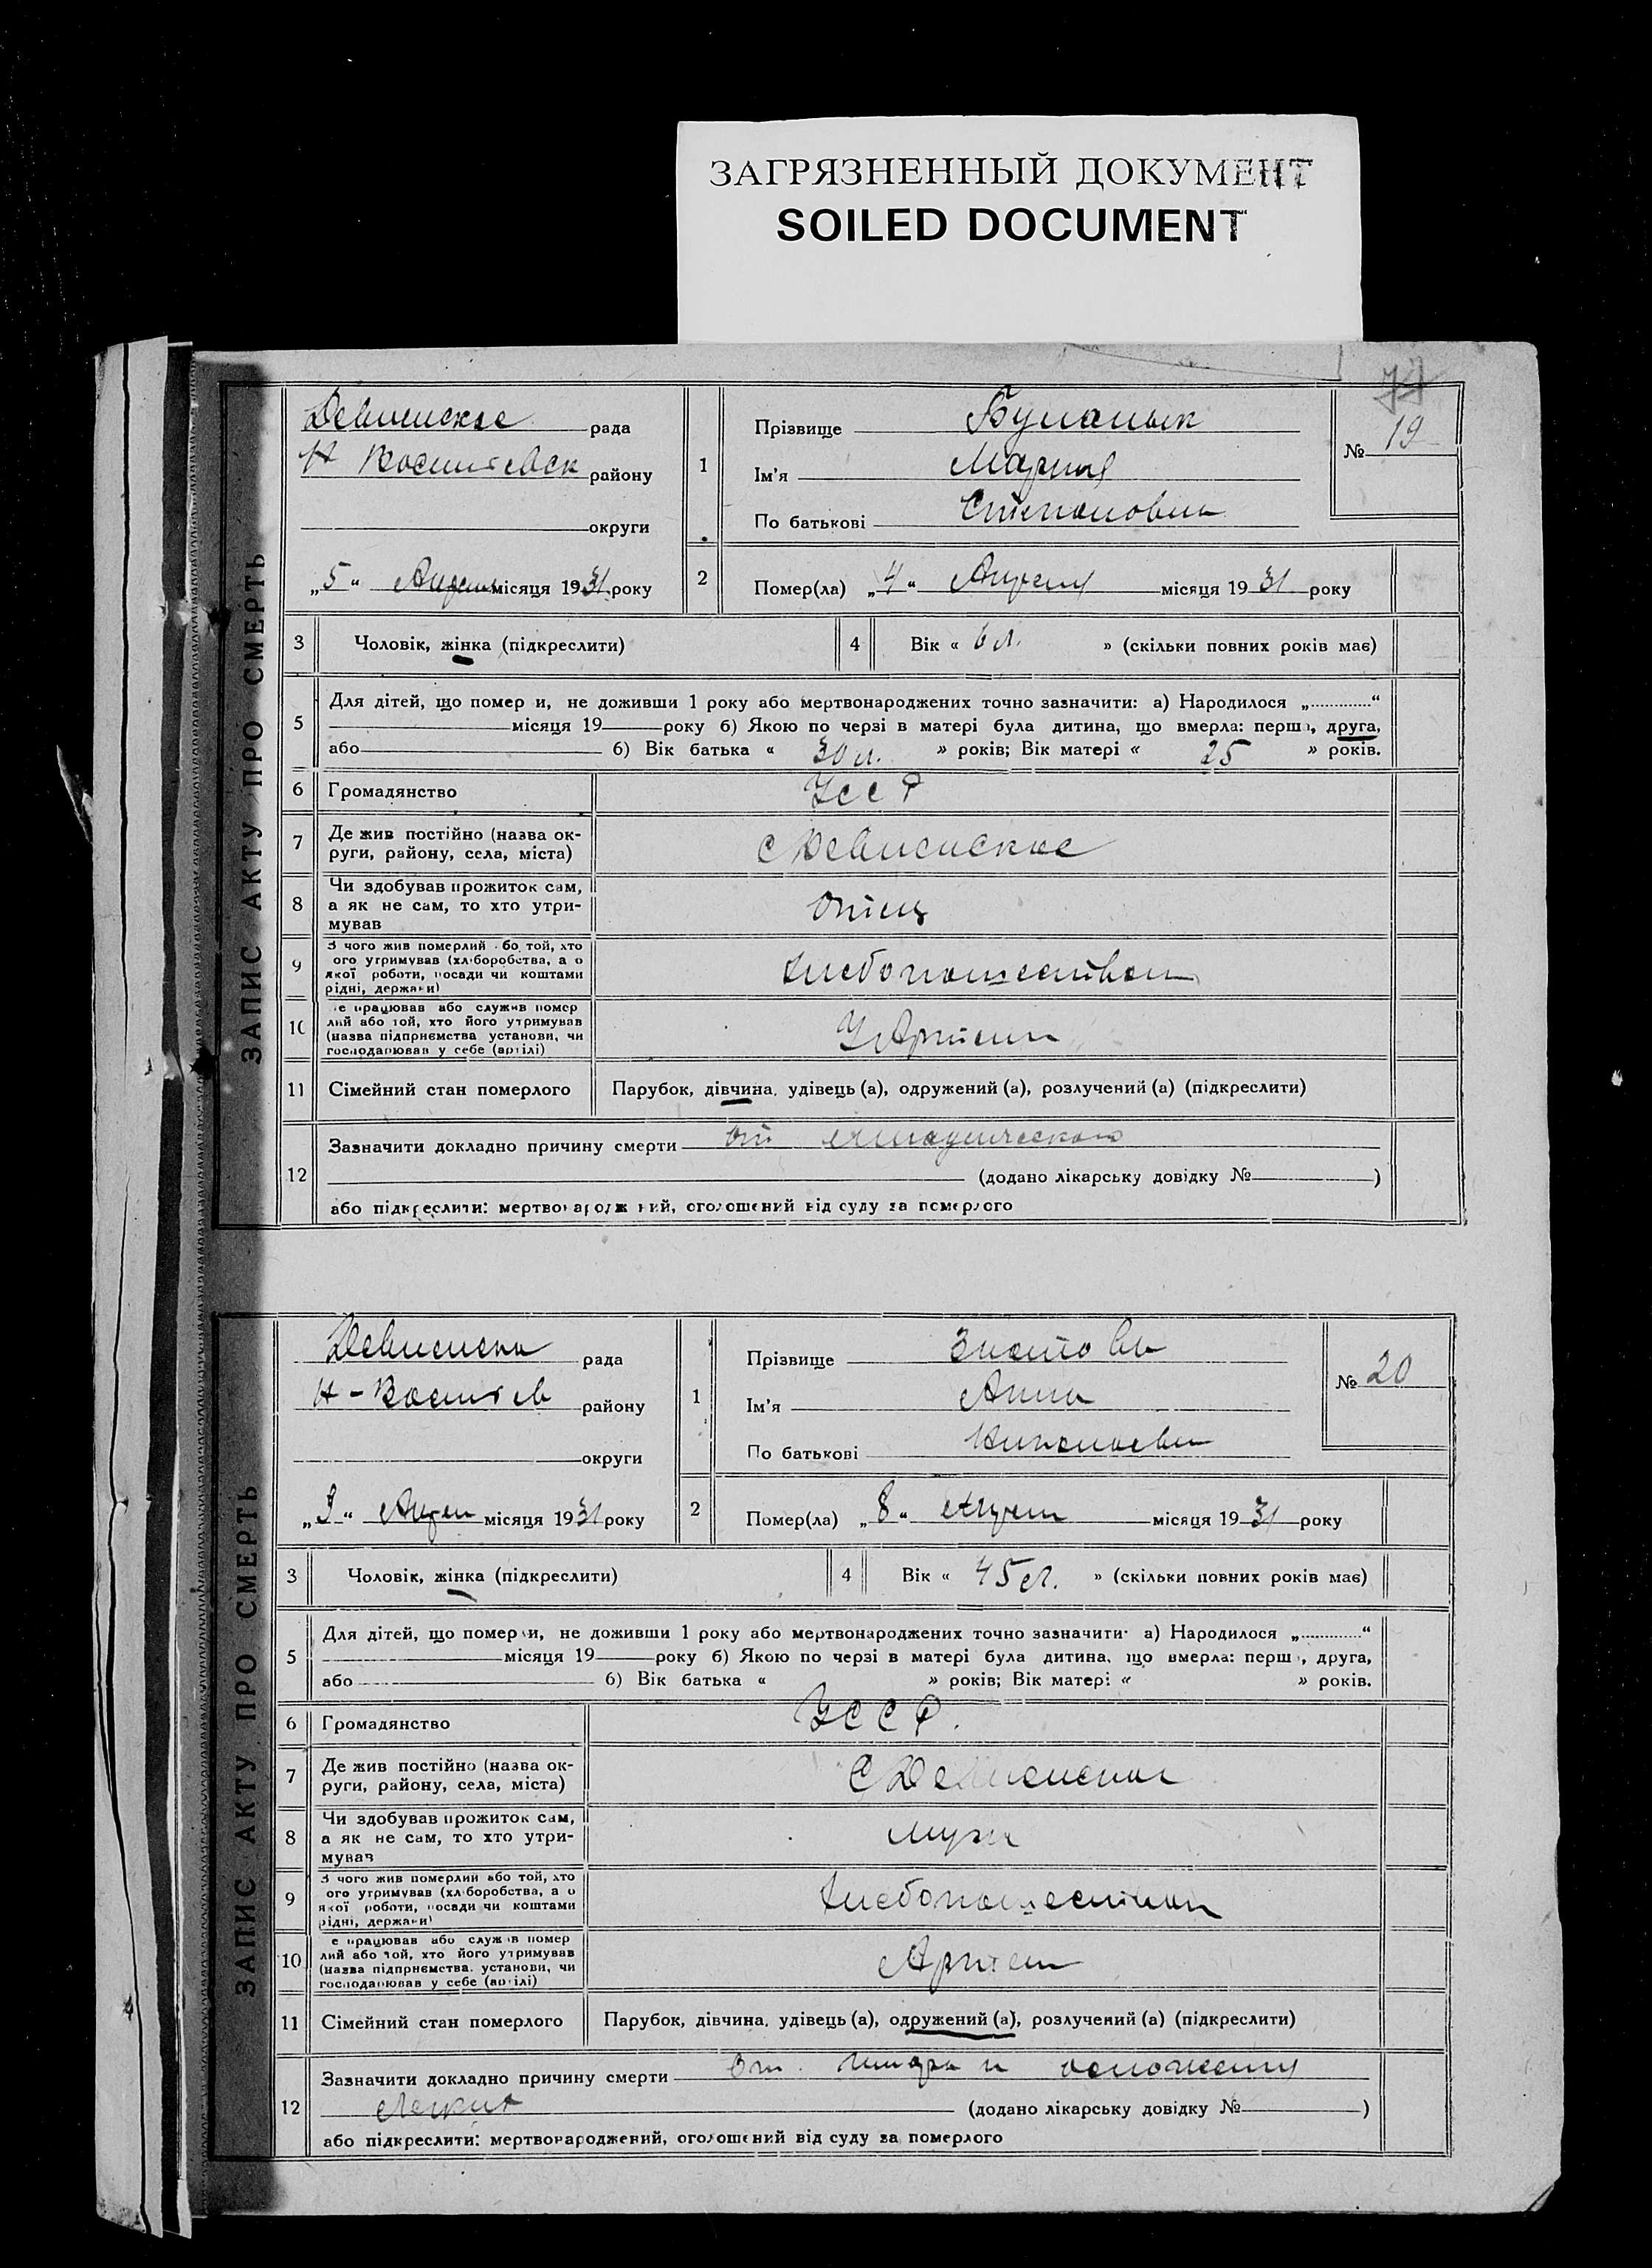 ЗАГРЯЗНЕННЫЙ ДОКУМЕНТ
SOILED DOCUMENT
ЗАПИС АКТУ ПРО СМЕРТЬ
рада
району
округи
„5“ Апреля місяця 1931 року
1
Прізвище
Ім'я Мария
По батькові Степановна
№ 19
2
Помер(ла) „4“ Апреля місяця 1931 року
3 Чоловік, жінка (підкреслити)
4 Вік « 6 л. » (скільки повних років має)
5 Для дітей, що помер и, не доживши 1 року або мертвонароджених точно зазначити: а) Народилося „............“
місяця 19 року б) Якою по черзі в матері була дитина, що вмерла: перша, друга,
або б) Вік батька « 30 л. » років; Вік матері « 25 » років.
6 Громадянство УССР
7 Де жив постійно (назва ок-
руги, району, села, міста)
8 Чи здобував прожиток сам,
а як не сам, то хто утри-
мував
Отец
9 З чого жив померлий або той, хто
ого утримував (хліборобства, а о
якої роботи, посади чи коштами
рідні, держави)
Хлебопашеством
10 е працював або служив помер
лий або той, хто його утримував
(назва підприємства установи, чи
господарював у себе (артілі)
У Артели
11 Сімейний стан померлого Парубок, дівчина, удівець (а), одружений (а), розлучений (а) (підкреслити)
12 Зазначити докладно причину смерти от
(додано лікарську довідку № )
або підкреслити: мертвонароджений, оголошений від суду за померлого
ЗАПИС АКТУ ПРО СМЕРТЬ
рада
району
округи
„9“ Апрел місяця 1931 року
1
Прізвище
Ім'я Анна
По батькові Николаевн
№ 20
2
Помер(ла) „8“ Апрел місяця 1931 року
3 Чоловік, жінка (підкреслити)
4 Вік « 45 л. » (скільки повних років має)
5 Для дітей, що помер и, не доживши 1 року або мертвонароджених точно зазначити: а) Народилося „............“
місяця 19 року б) Якою по черзі в матері була дитина, що вмерла: перш , друга,
або б) Вік батька « » років; Вік матері « » років.
6 Громадянство УССР.
7 Де жив постійно (назва ок-
руги, району, села, міста)
8 Чи здобував прожиток сам,
а як не сам, то хто утри-
мував
муж
9 З чого жив померлий або той, хто
ого утримував (хліборобства, а о
якої роботи, посади чи коштами
рідні, держави)
Хлебопашеством
10 е працював або служив помер
лий або той, хто його утримував
(назва підприємства, установи, чи
господарював у себе (артілі)
Артели
11 Сімейний стан померлого Парубок, дівчина, удівець (а), одружений (а), розлучений (а) (підкреслити)
12 Зазначити докладно причину смерти от
(додано лікарську довідку № )
або підкреслити: мертвонароджений, оголошений від суду за померлого